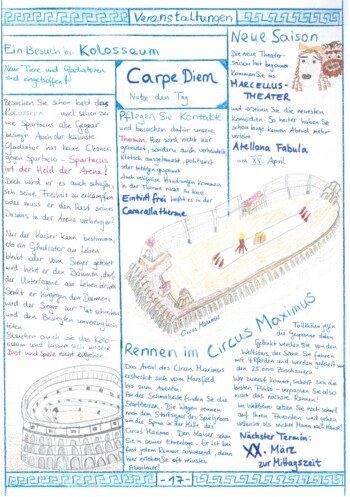 Veranstaltungen
Ein Besuch im Kolosseum
Neue Tiere und Gladiatoren
sind eingetroffen!
Besuchen Sie schon bald das
Kolosseum und sehen zu
wie Spartacus alle Gegner
besiegt. Auch der kühnste
Gladiator hat keine Chance
gegen Spartacus - Spartacus
ist der Held der Arena!
Doch wird er es auch schaffen,
sich seine Freiheit zu erkämpfen
oder muss er den Rest seines
Daseins in der Arena verbringen?
Nur der Kaiser kann bestimmen,
ob ein Gladiator am Leben
bleibt oder vom Sieger getötet
wird: hebt er den Daumen, darf
der Unterlegene am Leben bleiben.
Senkt er hingegen den Daumen,
wird der Sieger zur Tat schreiten
und den Besiegten unverzüglich
töten.
Besuchen auch Sie das Kolo-
sseum und lassen sich unsere
Brot und Spiele nicht entgehen
Carpe Diem
Nutze den Tag
Pflegen Sie Kontakte
und besuchen dafür unsere
Thermen. Hier wird nicht nur
gebadet, sondern auch verhandelt,
Klatsch ausgetauscht, politisiert
oder Intrigen gesponnen.
Auch religiöse Handlungen kommen
in der Therme nicht zu kurz.
Eintritt frei heißt es in der
Caracallatherme.
Neue Saison
Die neue Theater-
saison hat begonnen.
Kommen Sie ins
MARCELLUS-
THEATER
und erleben Sie die neuesten
Komödien. So heiter haben Sie
schon lange keinen Abend mehr
verlebt.
Atellana Fabula
am XV. April
Circus Maximus
Rennen im Circus Maximus
Das Areal des Circus Maximus
erstreckt sich vom Marsfeld
bis zum Aventin.
An der Schmalseite finden Sie die
Startboxen. Die Wagen rennen
nach dem Startsignal des Spielgebers
um die Spina in der Mitte des
Circus Maximus. Den Kaiser sehen
Sie in seiner Ehrenloge. Er ist bei
fast jedem Rennen anwesend, denn
hier erleben Sie oft manches
Abenteuer!
Tollkühn
die Gespanne daher.
Gejubelt werden Sie von den
Wettstars der Szene. Sie fahren
mit 4 Pferden und werden gefeiert von
den 25.000 Zuschauern.
Wer zuerst kommt, sichert sich die
besten Plätze - verpassen Sie also
nicht das nächste Rennen!
Im Wettbüro setzen Sie noch schnell
auf Ihren Favoriten und gehen
vielleicht als reicher Mann nach Hause!
Nächster Termin:
XX. März
zur Mittagszeit
-17-